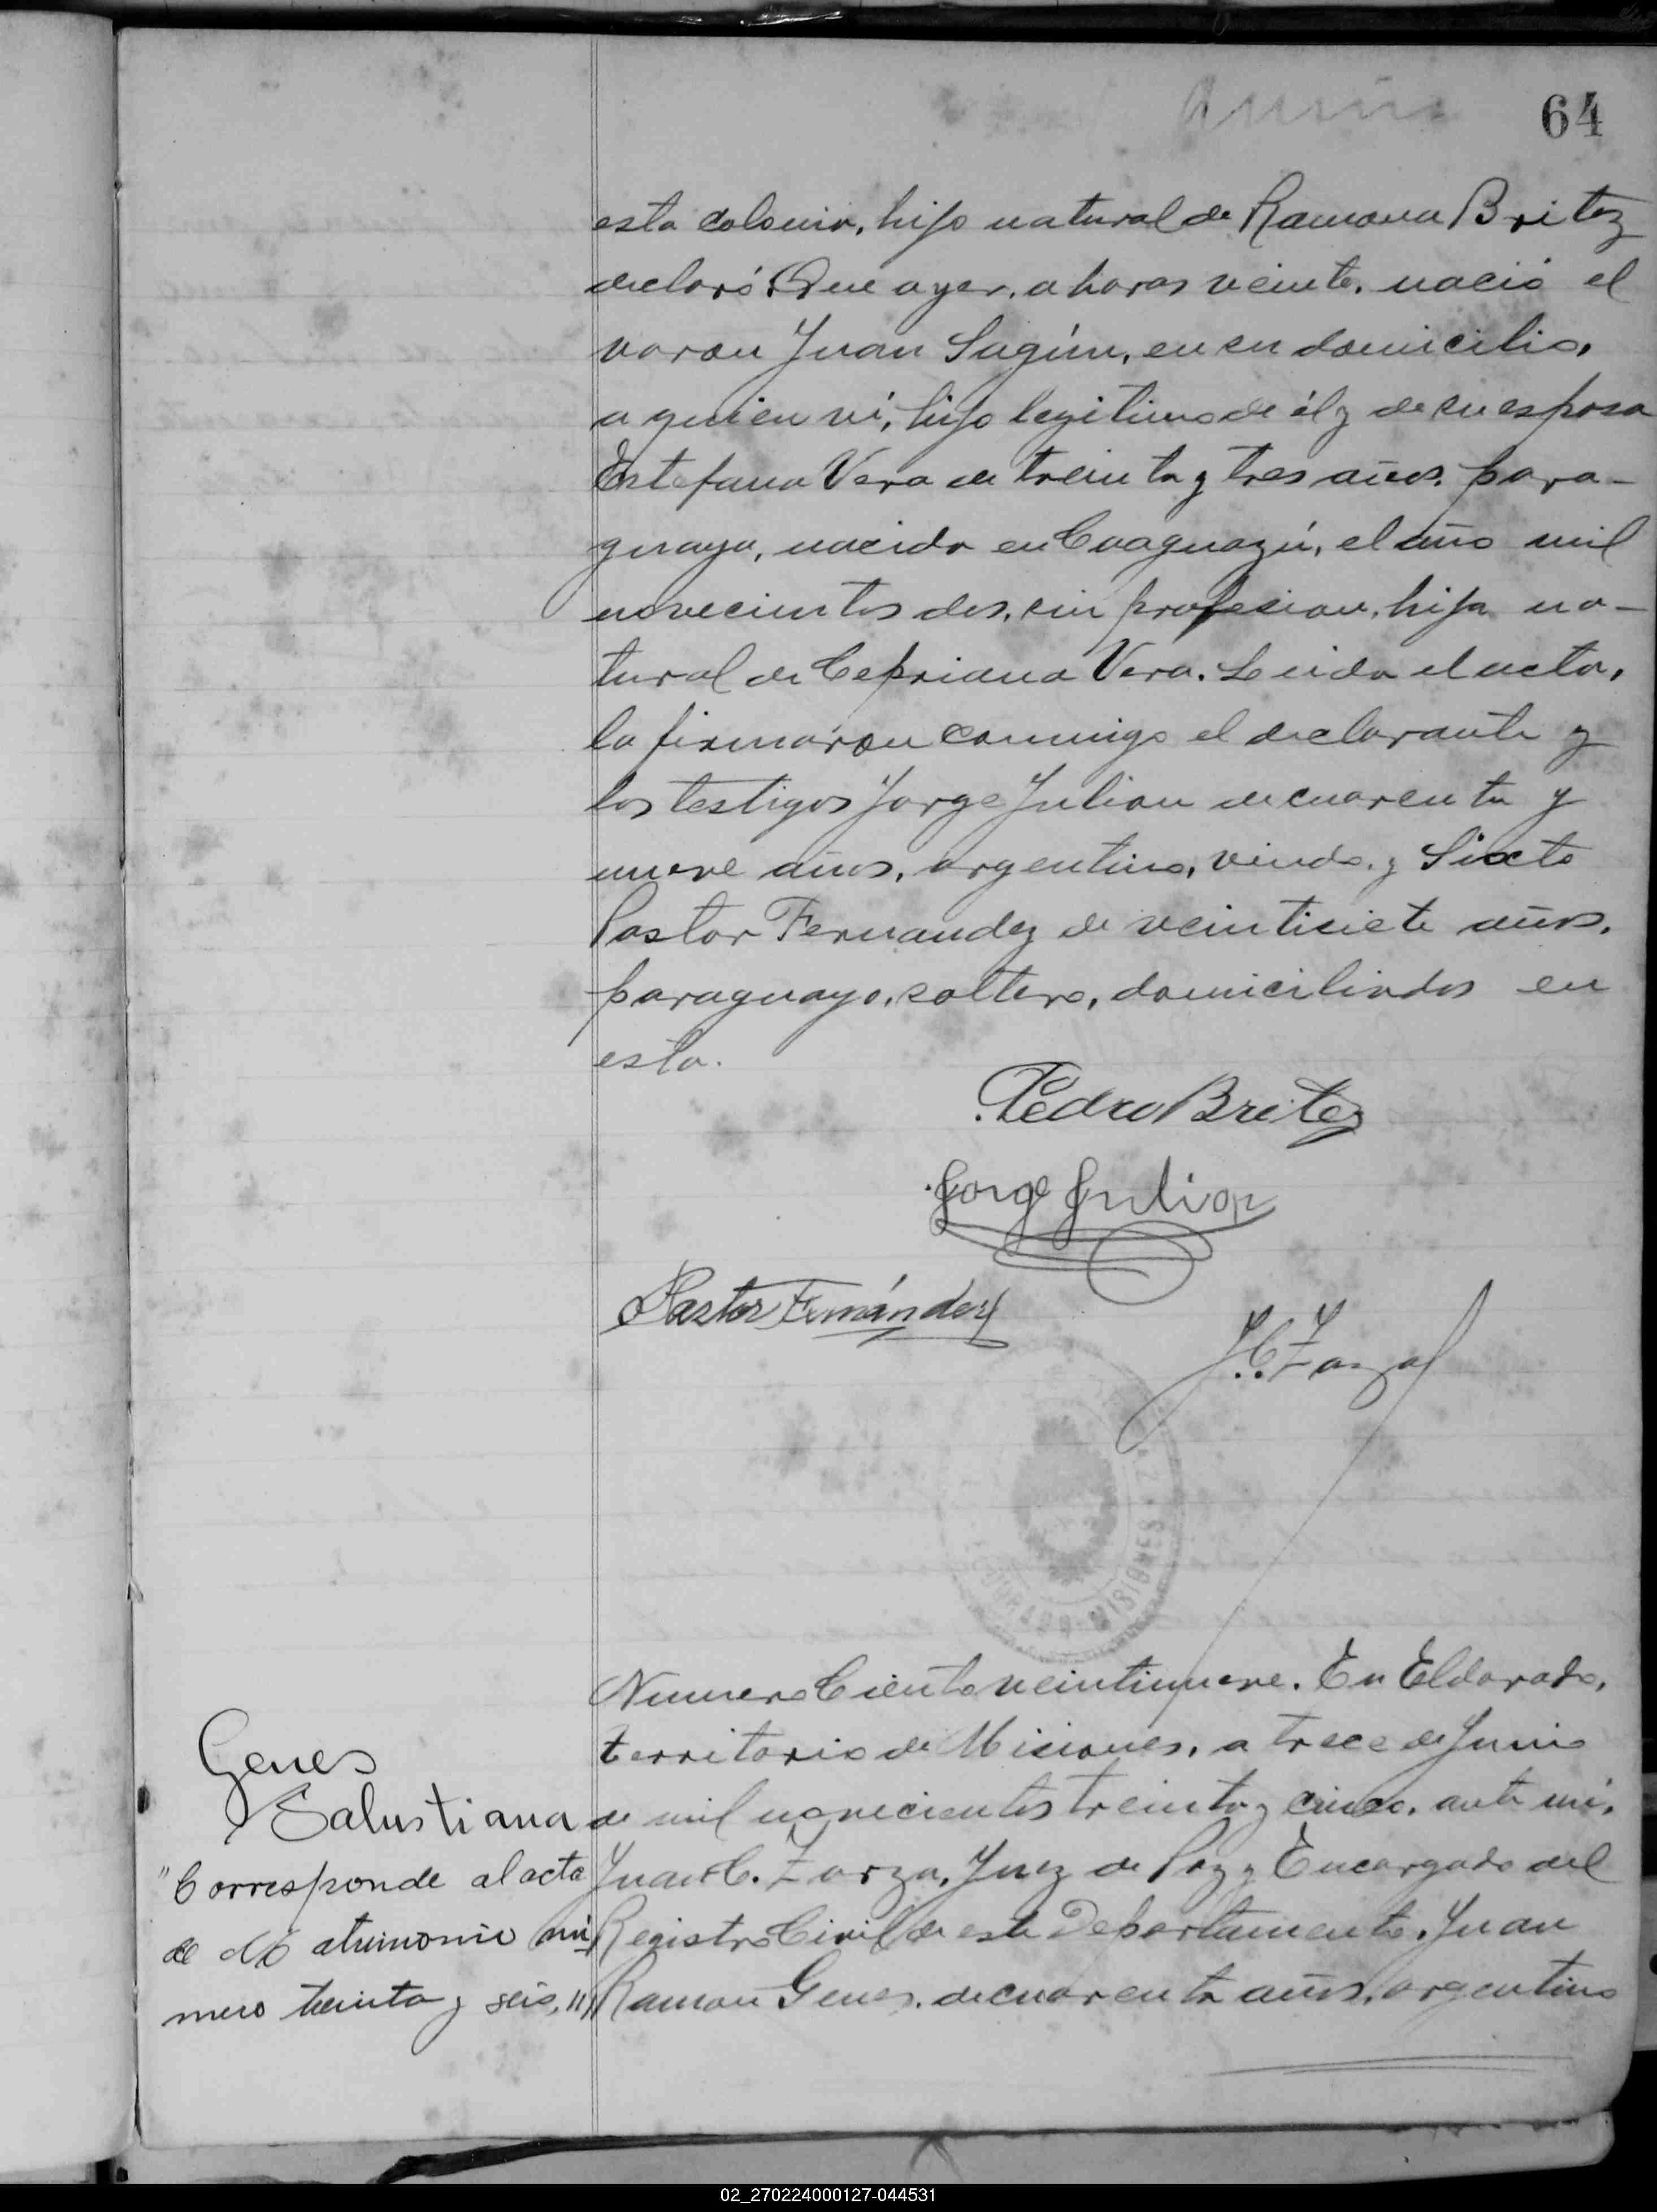 64
esta colonia, hijo natural de Ramona Britez
declaró: Que ayer, a horas veinte, nació el
varon Juan Sagún, en su domicilio,
a quien ví, hijo legitimo de él y de su esposa
Estefana Vera de treinta y tres años, para-
guaya, nacida en Caaguazú, el año mil
novecientos dos, sin profesion, hija na-
tural de Cepriana Vera. Leida el acta,
la firmaron conmigo el declarante y
los testigos Jorge Julian de cuarenta y
nueve años, argentino, viudo, y Sixto
Pastor Fernandez de veintisiete años,
paraguayo, soltero, domiciliados en
esta.
Pedro Britez
Jorge Julian
Pastor Fernández
J. C. Zarza
DORADO - MISIONES
Numero Ciento veintinueve. En Eldorado,
territorio de Misiones, a trece de Junio
Genes
Salustiana
de mil novecientos treinta y cinco, ante mí,
"Corresponde al acta
Juan C. Zarza, Juez de Paz y Encargado del
de Matrimonio nú
Registro Civil de este Departamento, Juan
mero treinta y seis,"
Ramon Genes, de cuarenta años, argentino
02_270224000127-044531